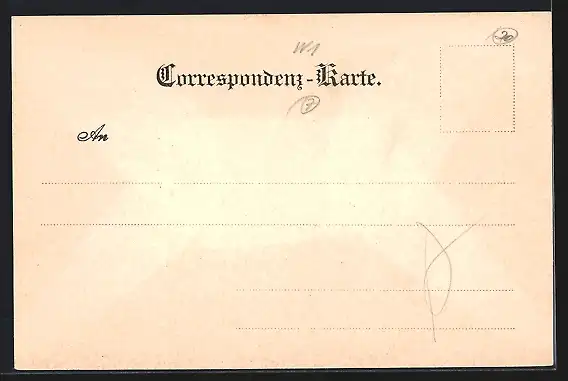 W1
30
Correspondenz-Karte.
7
An